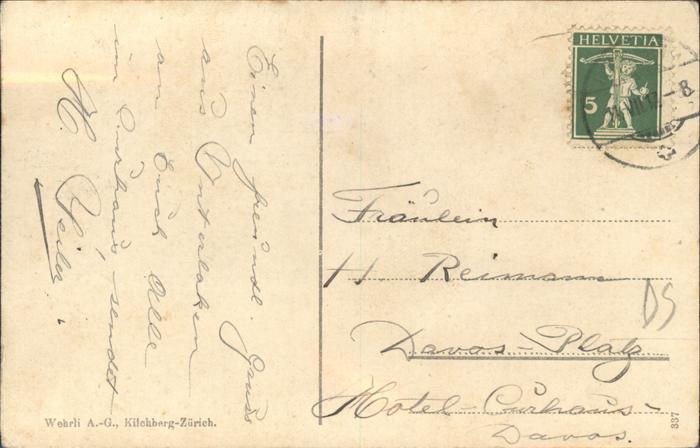 Einen freundl. Gruss
aus Interlaken
an Euch Alle
im Curhaus sendet
H.
HELVETIA
5
VII 12 - 8
Fräulein
H. Reimann
Davos-Platz
Hotel-Curhaus-
Davos.
DS
Wehrli A.-G., Kilchberg-Zürich.
337